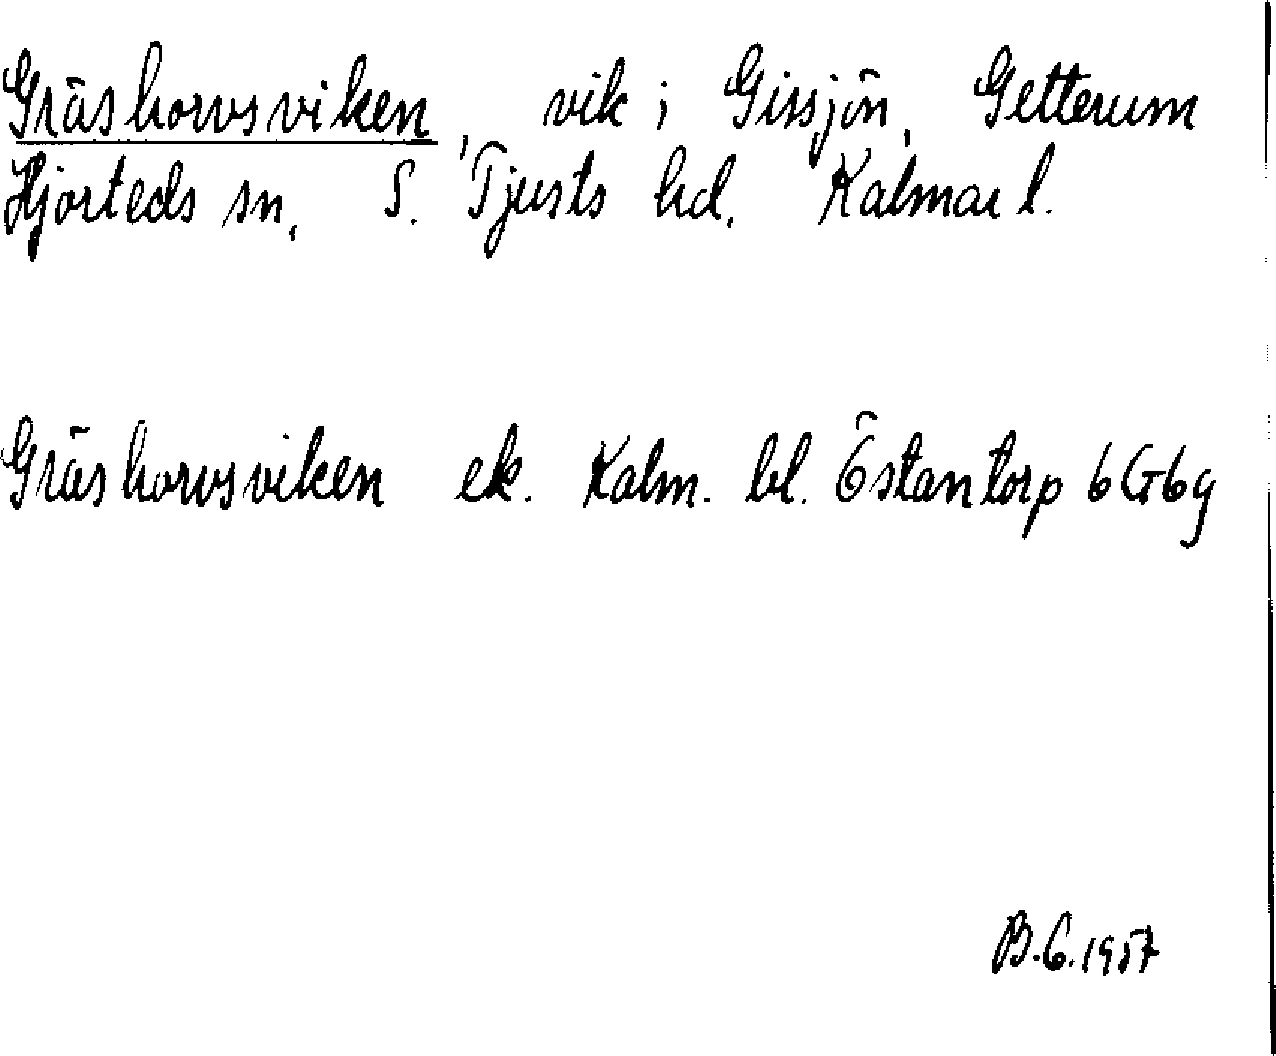 Gräshorvsviken, vik i Gissjön, Getterum
Hjorteds sn, S. Tjusts hd, Kalmar l.
Gräshorvsviken ek. Kalm. bl. Östantorp 6G6g
B.G. 1957